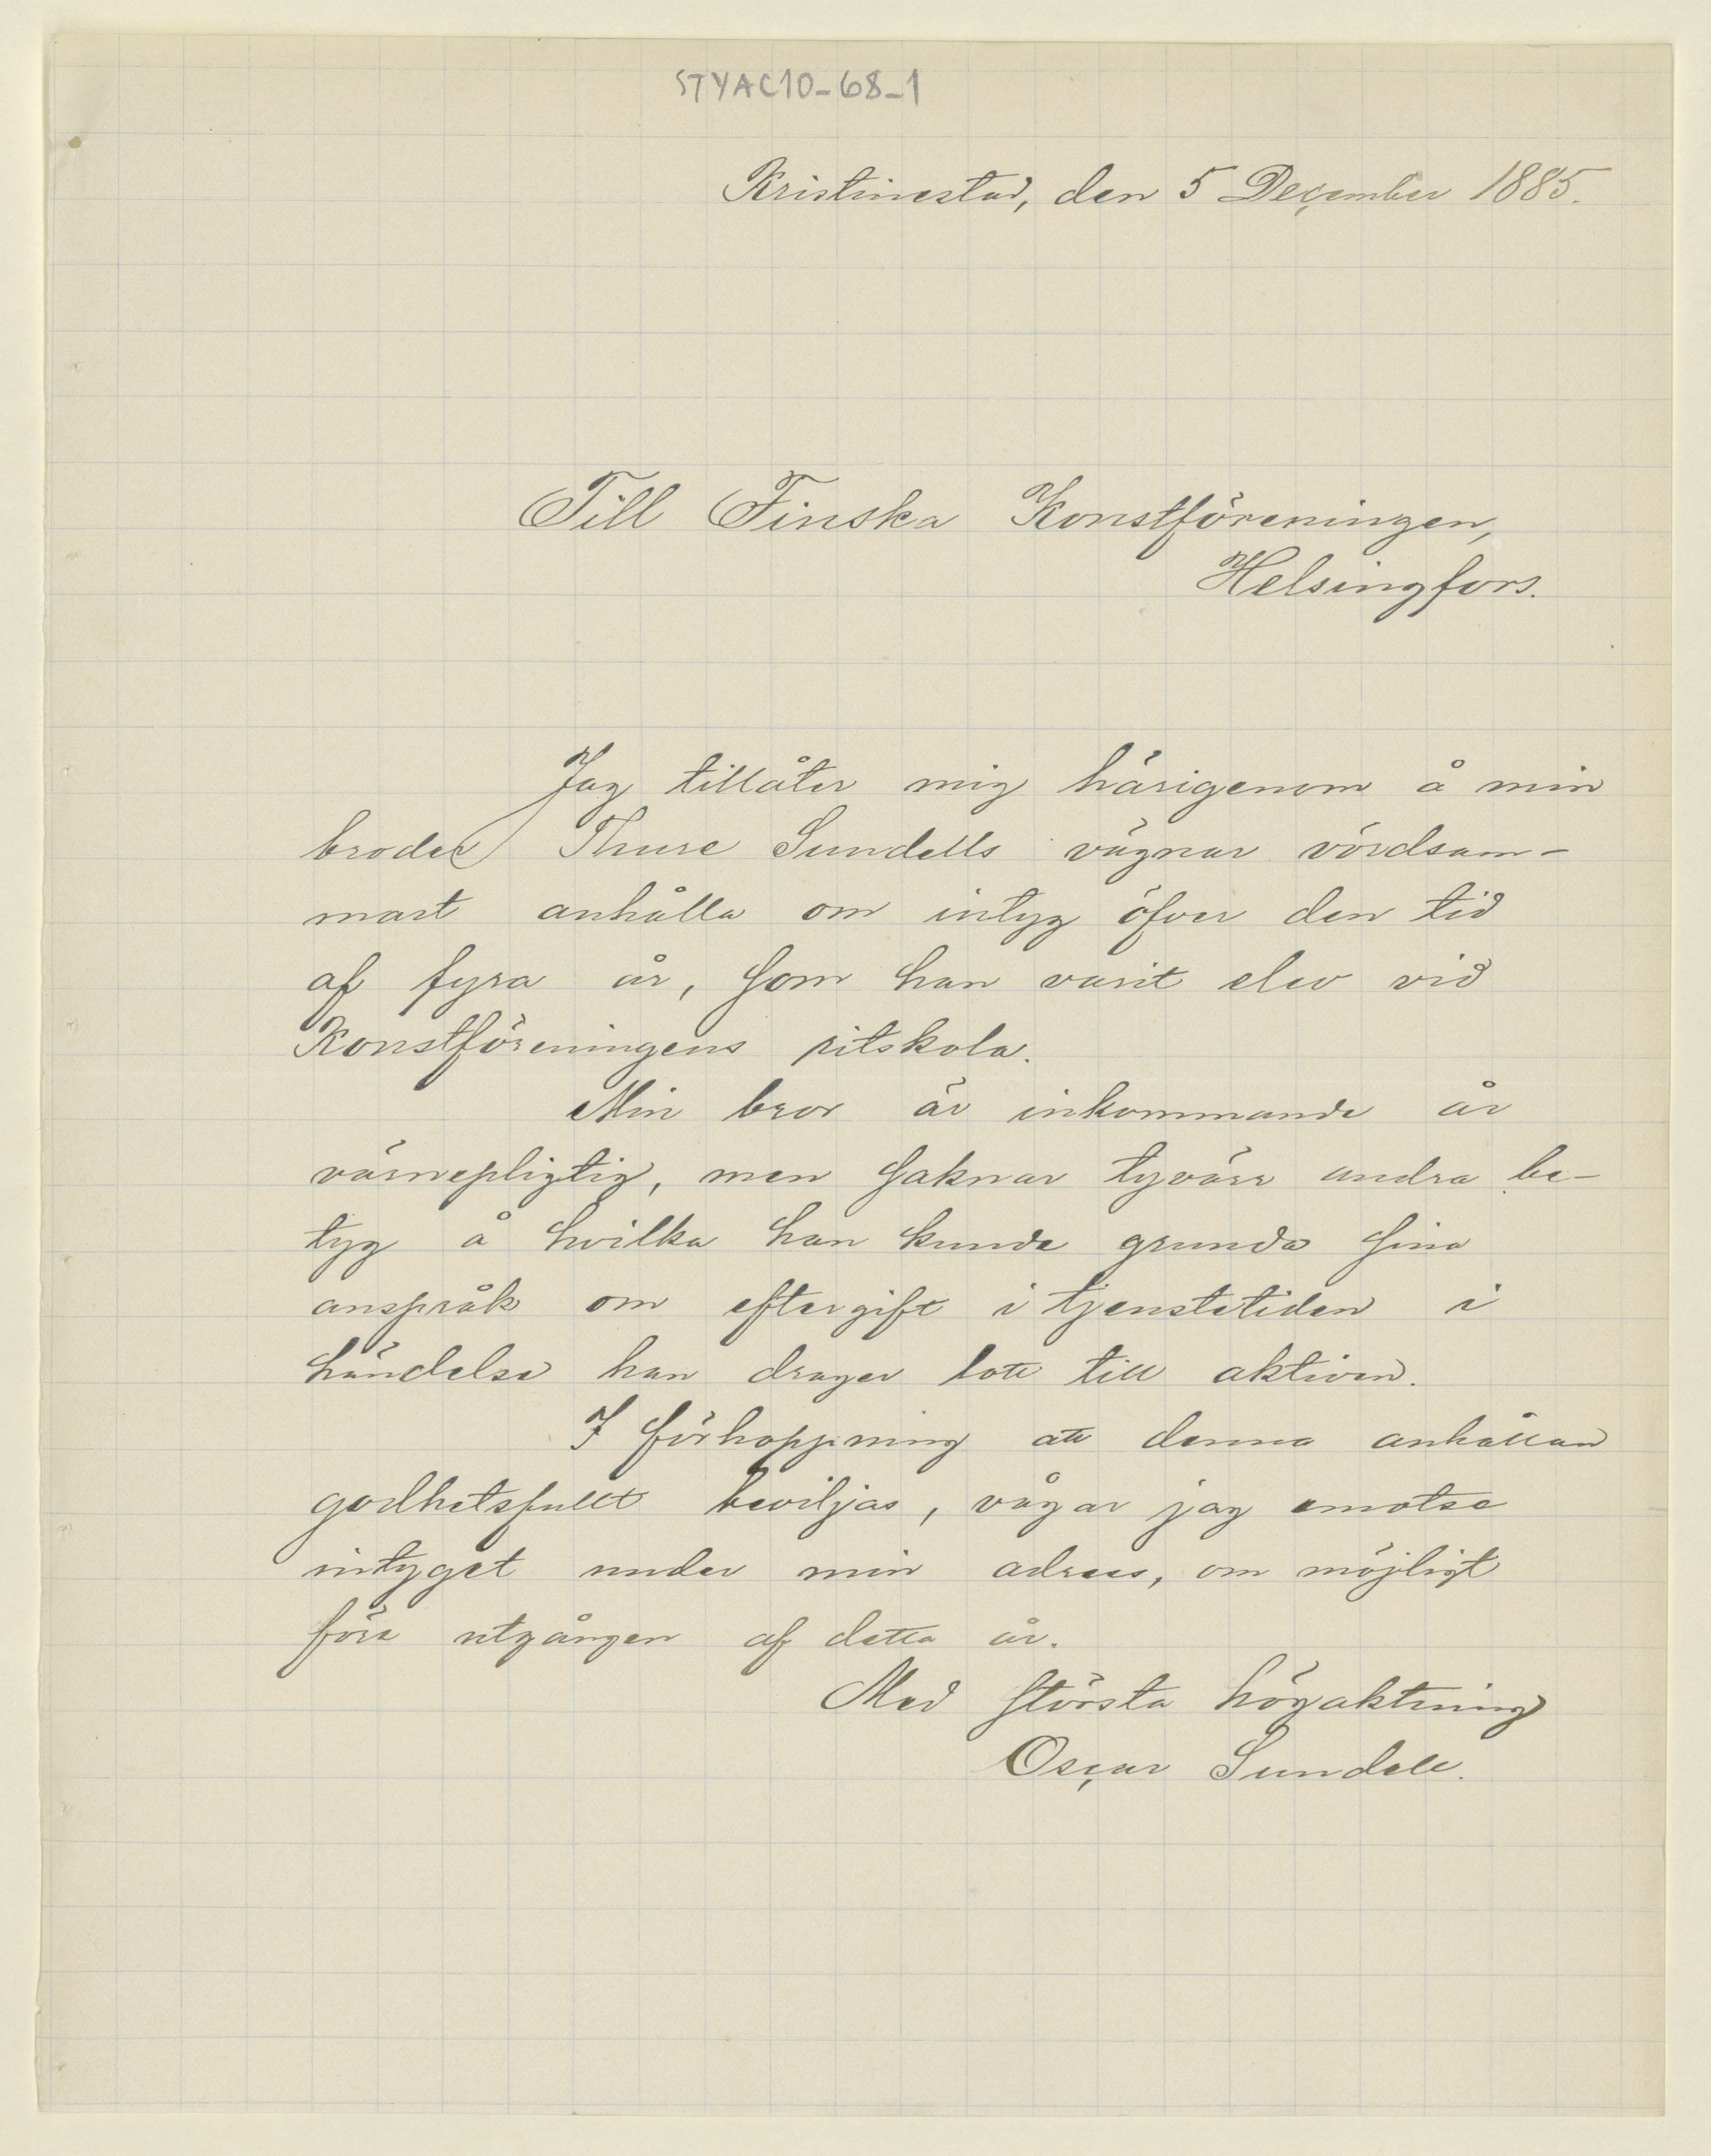 STYAC10-68-1
Kristinestad, den 5 December 1885.
Till Finska Konstföreningen,
Helsingfors.
Jag tillåter mig härigenom å min
broder Thure Sundells vägnar vördsam-
mast anhålla om intyg öfver den tid
af fyra år, som han varit elev vid
Konstföreningens ritskola.
Min bror är inkommande år
värnepligtig, men saknar tyvärr andra be-
tyg å hvilka han kunde grunda sina
anspråk om eftergift i tjenstetiden i
händelse han drager lott till aktiven.
I förhoppning att denna anhållan
godhetsfullt beviljas, vågar jag emotse
intyget under min adress, om möjligt
före utgången af detta år.
Med största högaktning
Oscar Sundell.